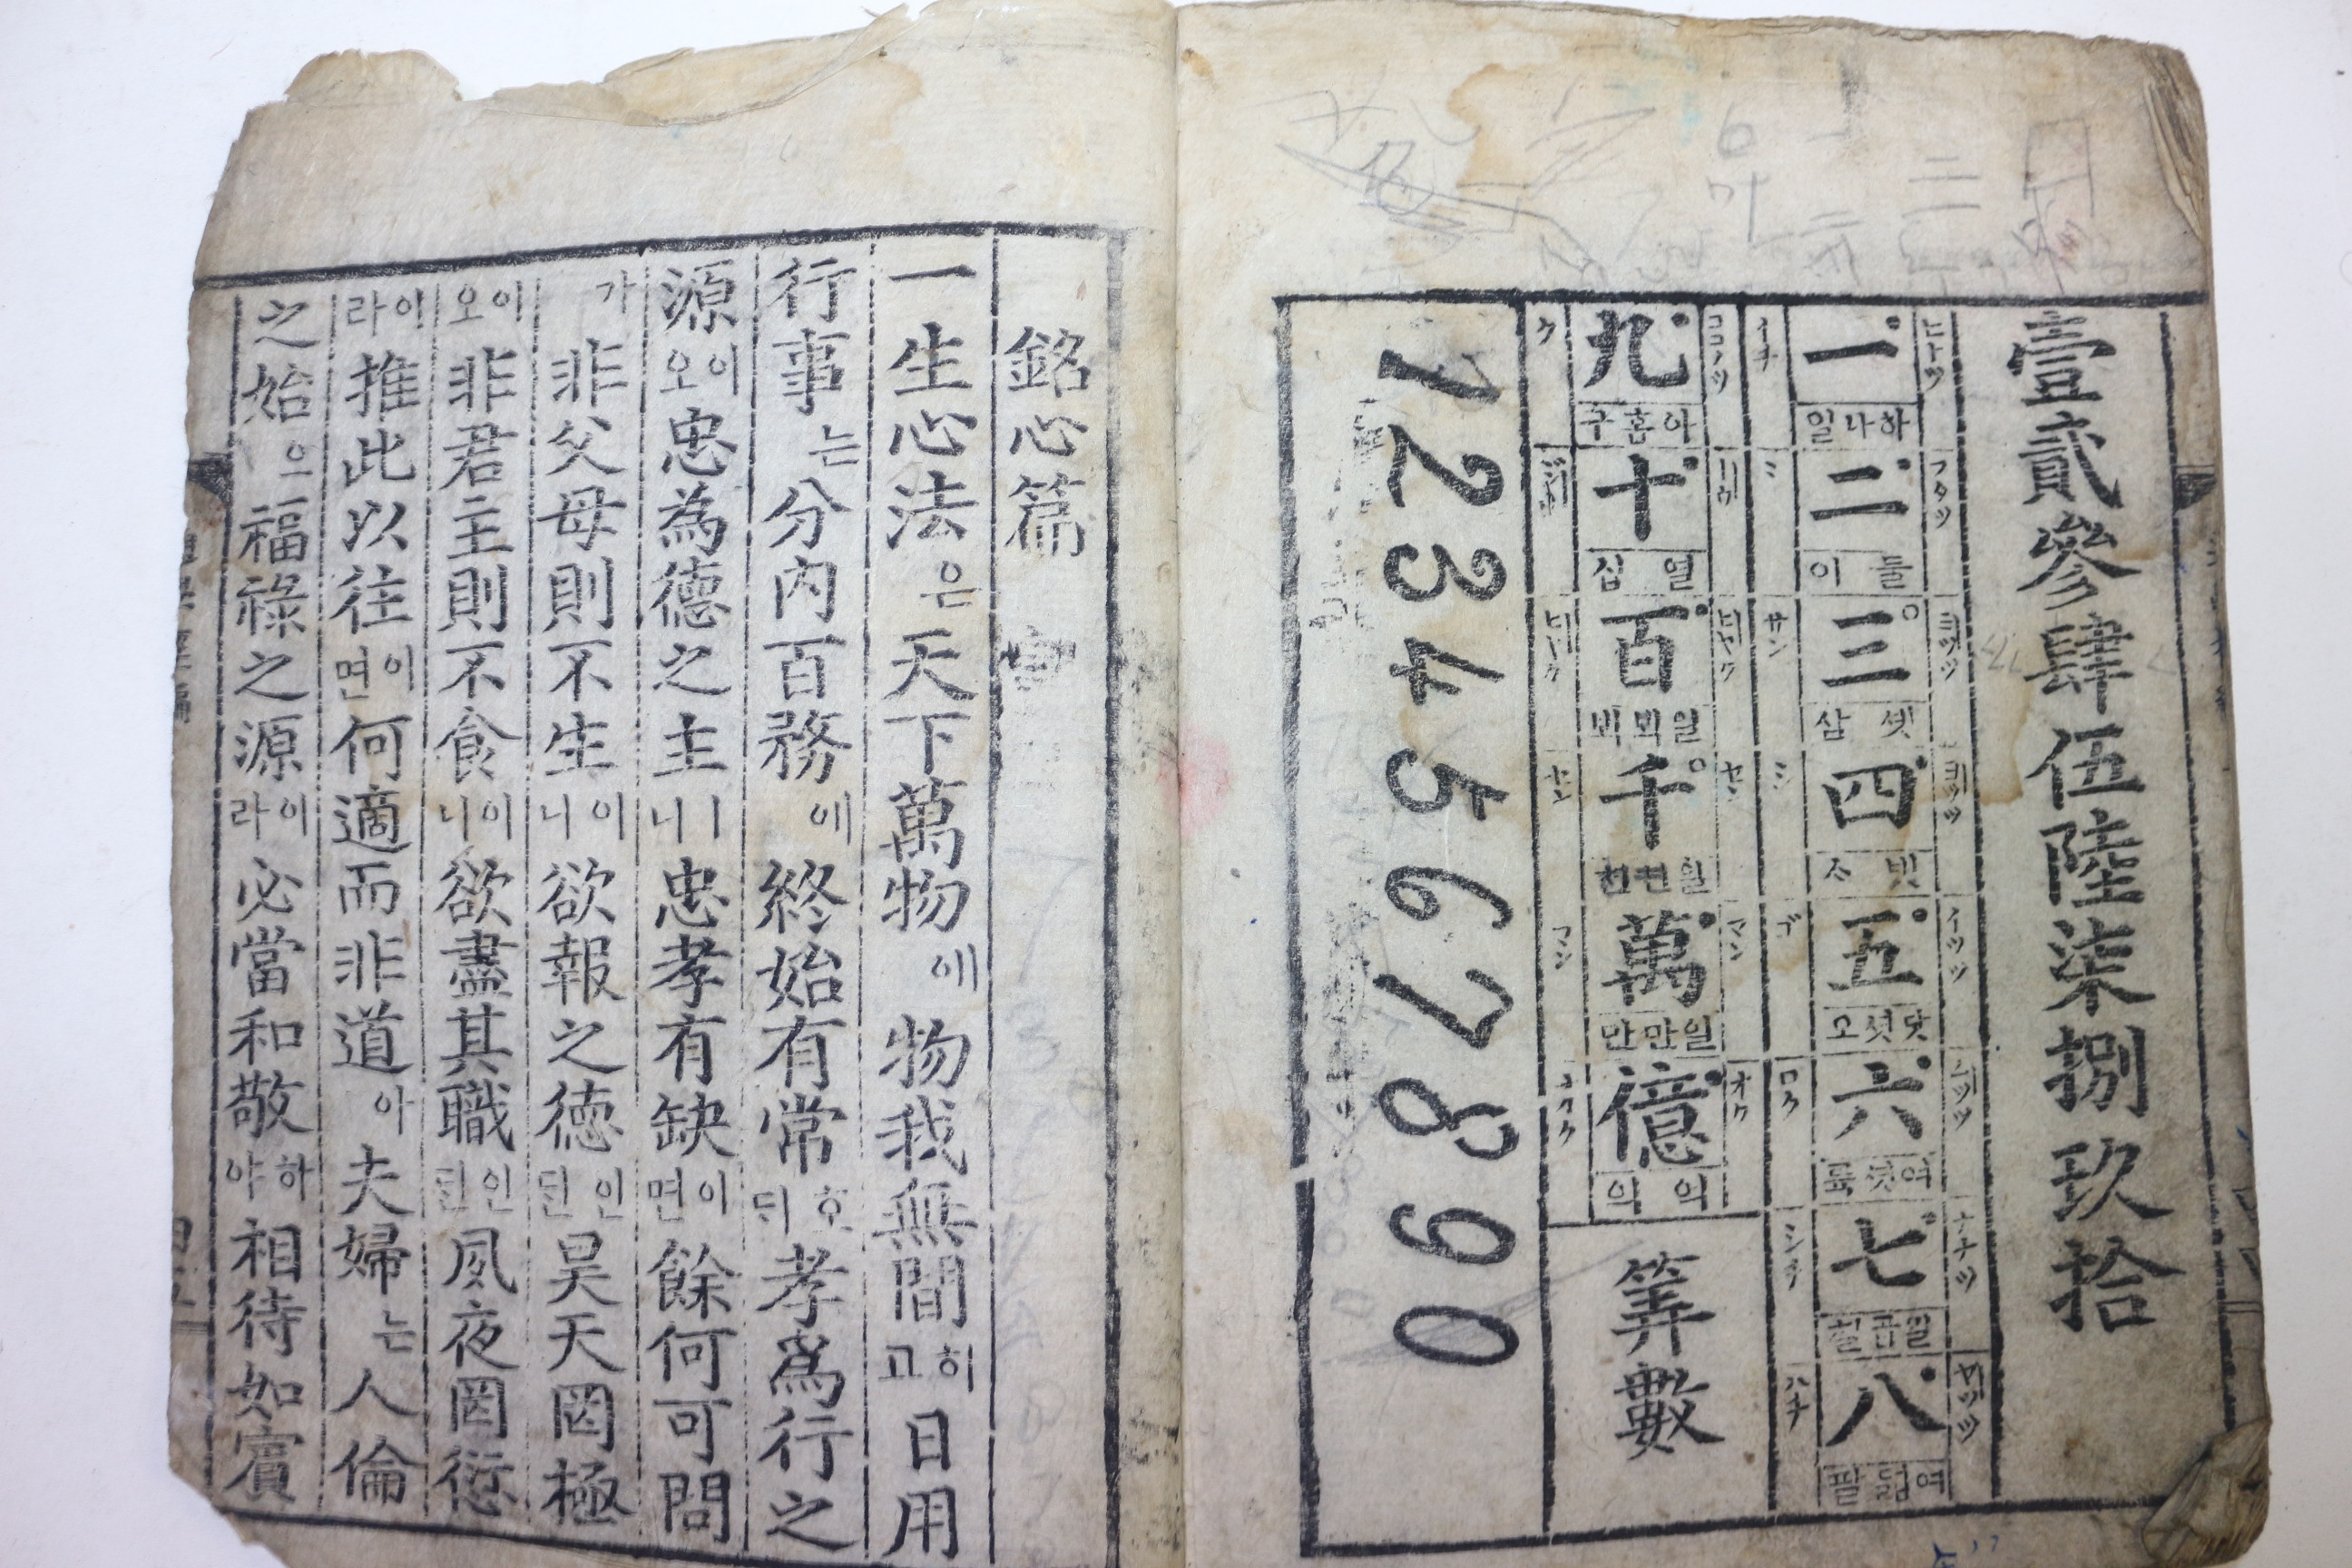 壹貳參肆伍陸柒捌玖拾
ヒトツ フタツ ミツツ ヨツツ イツツ ムツツ ナナツ ヤツツ
一 하나일 二 둘이 三 셋삼 四 五 다섯오 六 여섯륙 七 일곱칠 八 여덟팔
イチ ミ サン シ ゴ ロク シチ ハチ
ココノツ トウ ヒヤク セン マン オク
九 아홉구 十 열십 百 일ᄇᆡᆨᄇᆡᆨ 千 일천천 萬 일만만 億 억억 筭數
ク ヒヤク セン マン オク
1234567890
銘心篇
一生心法은天下萬物에物我無間히고日用
行事는分內百務에終始有常호ᄃᆡ孝爲行之
源이오忠為德之主ㅣ니忠孝有缺이면餘何可問
가非父母則不生이니欲報之德인ᄃᆡᆫ昊天罔極
이오非君主則不食이니欲盡其職인ᄃᆡᆫ夙夜罔愆
이라推此以往이면何適而非道아夫婦는人倫
之始으福祿之源이라必當和敬하야相待如賓